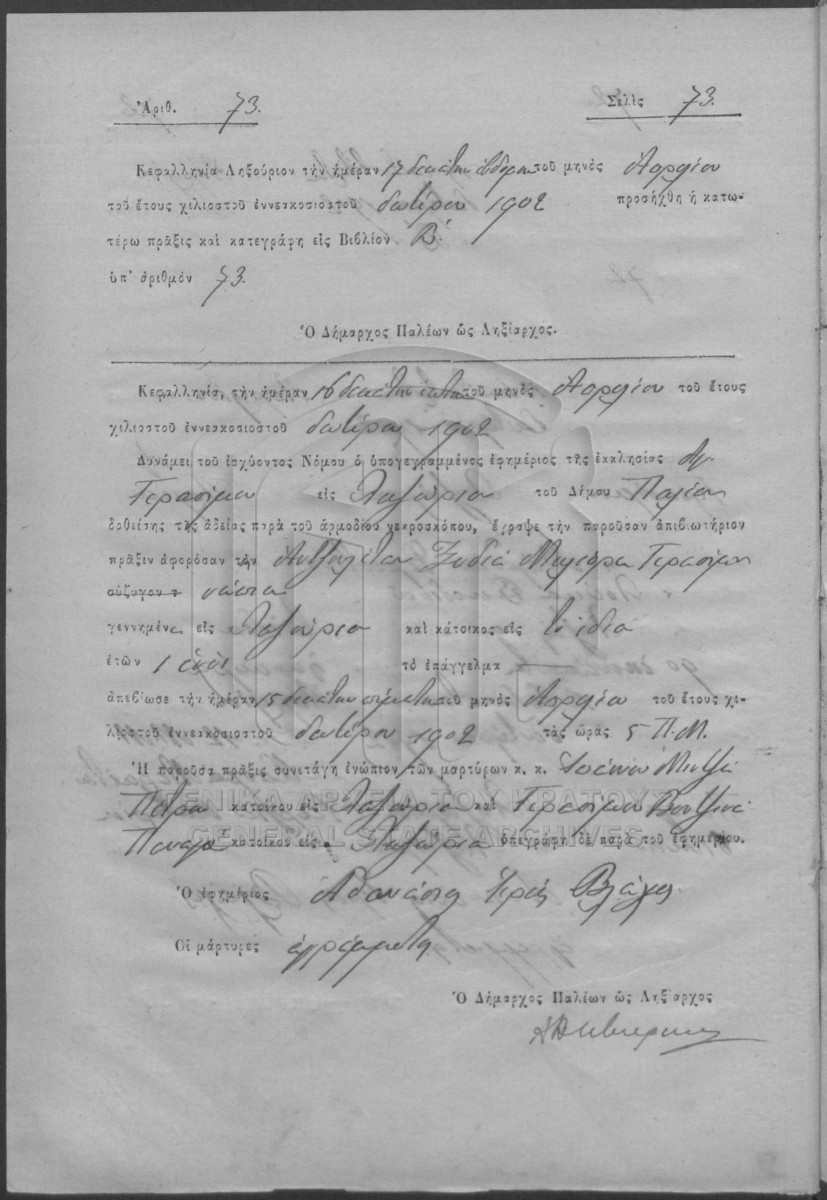 Ἀριθ. 73. Σελὶς 73.
Κεφαλληνία Ληξούριον τὴν ἡμέραν 17 δεκάτην ἑβδόμην τοῦ μηνὸς Ἀπριλίου
τοῦ ἔτους χιλιοστοῦ ἐννεακοσιοστοῦ δευτέρου 1902 προσήχθη ἡ κατω-
τέρω πρᾶξις καὶ κατεγράφη εἰς Βιβλίον Β΄
ὑπ' ἀριθμὸν 73.
Ὁ Δήμαρχος Παλέων ὡς Ληξίαρχος.
Κεφαλληνία, τὴν ἡμέραν 16 δεκάτην ἕκτην τοῦ μηνὸς Ἀπριλίου τοῦ ἔτους
χιλιοστοῦ ἐννεακοσιοστοῦ δευτέρου 1902
Δυνάμει τοῦ ἰσχύοντος Νόμου ὁ ὑπογεγραμμένος ἐφημέριος τῆς ἐκκλησίας Ἁγ.
Γερασίμου εἰς Ληξούριον τοῦ Δήμου Παλέων
δοθείσης τῆς ἀδείας παρὰ τοῦ ἁρμοδίου νεκροσκόπου, ἔγραψε τὴν παροῦσαν ἀπιβιωτήριον
πρᾶξιν ἀφορῶσαν τὴν Γερασίμου
σύζυγον
γεννημένα εἰς Ληξούριον καὶ κάτοικος εἰς τὸ ἴδιο
ἐτῶν 1 ἑνὸς τὸ ἐπάγγελμα —
ἀπεβίωσε τὴν ἡμέραν 15 δεκάτην πέμπτην τοῦ μηνὸς Ἀπριλίου τοῦ ἔτους χι-
λιοστοῦ ἐννεακοσιοστοῦ δευτέρου 1902 τὰς ὥρας 5 Π.Μ.
Ἡ παροῦσα πρᾶξις συνετάγη ἐνώπιον τῶν μαρτύρων κ. κ. Ἰωάννου
Πέτρου κατοίκου εἰς Ληξούριον καὶ Γερασίμου
Παναγῆ κατοίκου εἰς Ληξούριον ὑπεγράφη δὲ παρὰ τοῦ ἐφημερίου.
ΓΕΝΙΚΑ ΑΡΧΕΙΑ ΤΟΥ ΚΡΑΤΟΥΣ
GENERAL STATE ARCHIVES
Ὁ ἐφημέριος Ἀθανάσιος Ἱερεὺς
Οἱ μάρτυρες ἀγράμματοι
Ὁ Δήμαρχος Παλέων ὡς Ληξίαρχος